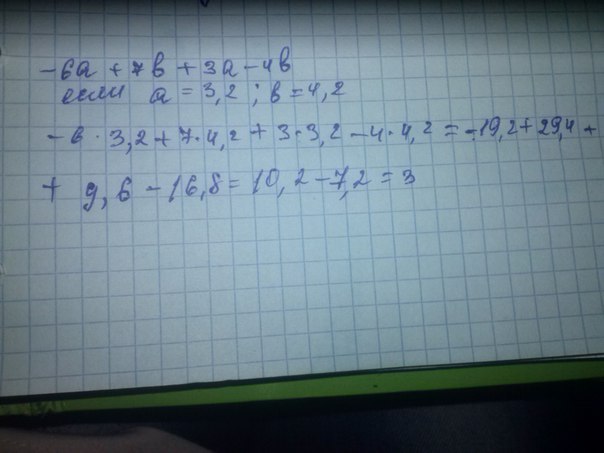 -6a + 7в + 3a - 4в
если a = 3,2 ; в = 4,2
-6 · 3,2 + 7 · 4,2 + 3 · 3,2 - 4 · 4,2 = -19,2 + 29,4 +
+ 9,6 - 16,8 = 10,2 - 7,2 = 3